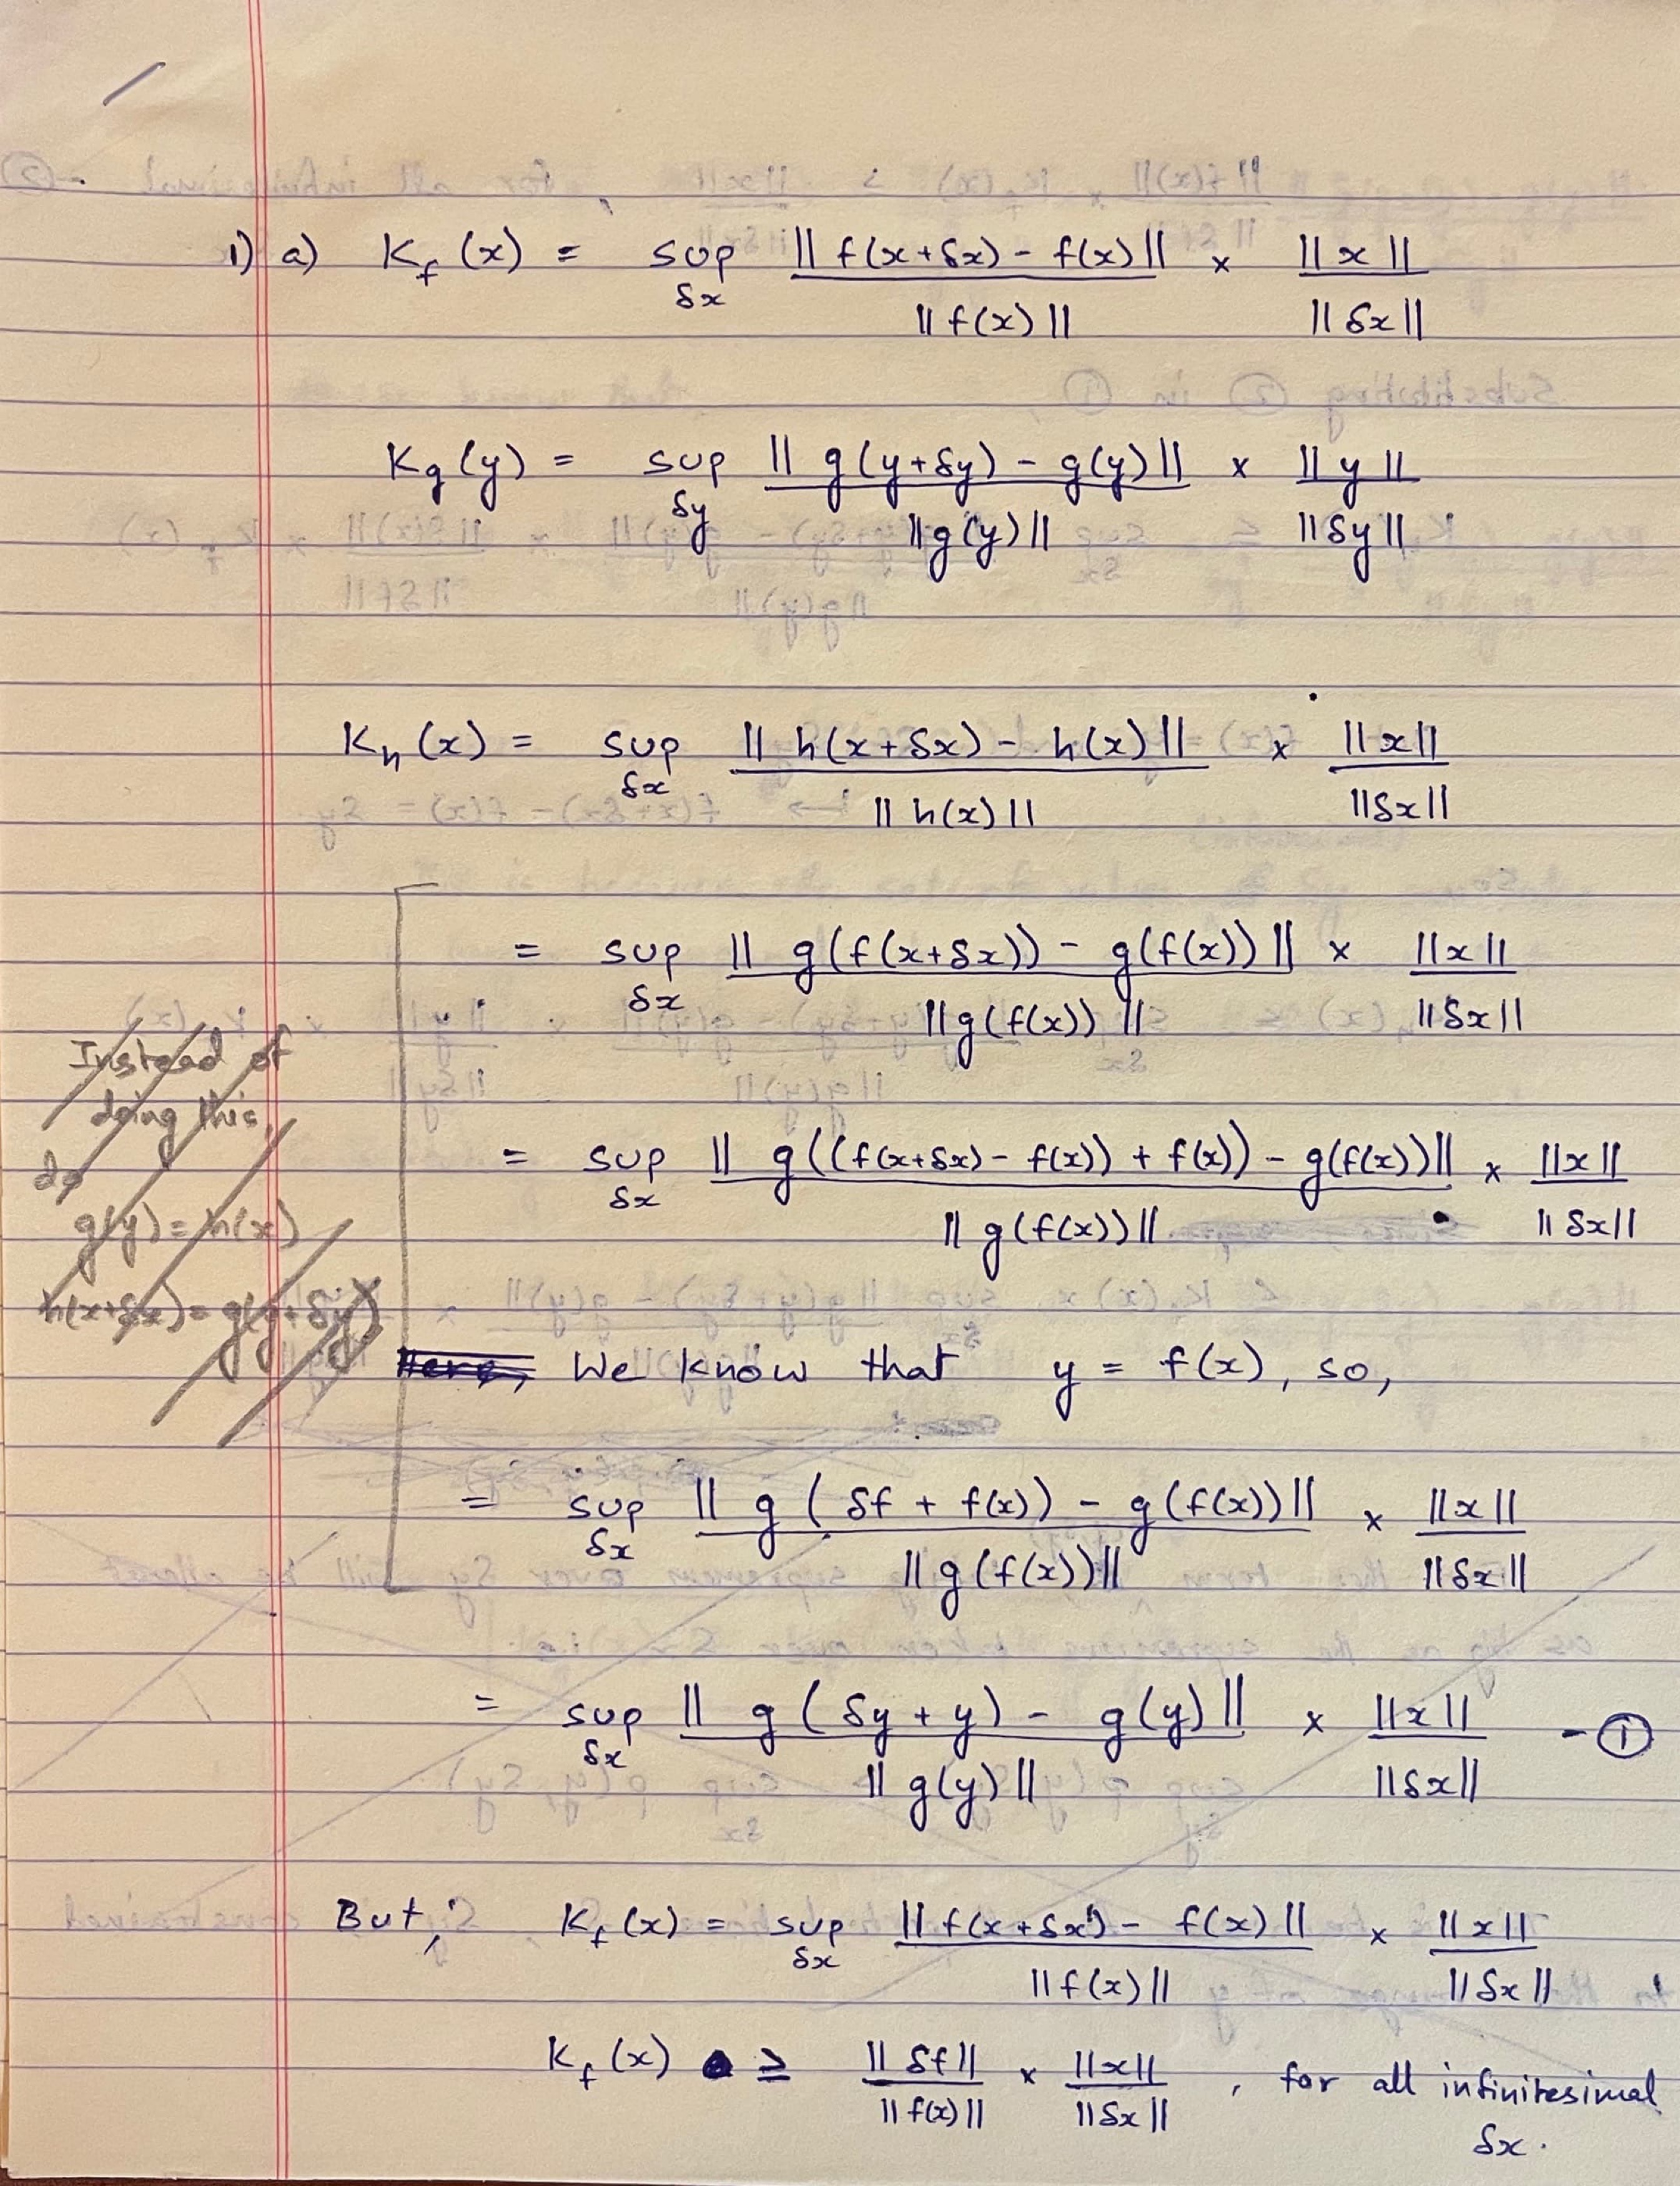 1) a) K_f (x) = sup_{δx} || f(x+δx) - f(x) || / || f(x) || × || x || / || δx ||
K_g (y) = sup_{δy} || g(y+δy) - g(y) || / || g(y) || × || y || / || δy ||
K_h (x) = sup_{δx} || h(x+δx) - h(x) || / || h(x) || × || x || / || δx ||
= sup_{δx} || g(f(x+δx)) - g(f(x)) || / || g(f(x)) || × || x || / || δx ||
Instead of
doing this,
do
g(y) = h(x)
h(x+δx) = g(y+δy)
= sup_{δx} || g((f(x+δx) - f(x)) + f(x)) - g(f(x)) || / || g(f(x)) || × || x || / || δx ||
Here, We know that y = f(x), so,
= sup_{δx} || g ( δf + f(x)) - g (f(x)) || / || g (f(x)) || × || x || / || δx ||
= sup_{δx} || g ( δy + y) - g(y) || / || g(y) || × || x || / || δx || - ①
But, K_f (x) = sup_{δx} || f(x + δx) - f(x) || / || f(x) || × || x || / || δx ||
K_f (x) ≥ || δf || / || f(x) || × || x || / || δx || , for all infinitesimal
δx.